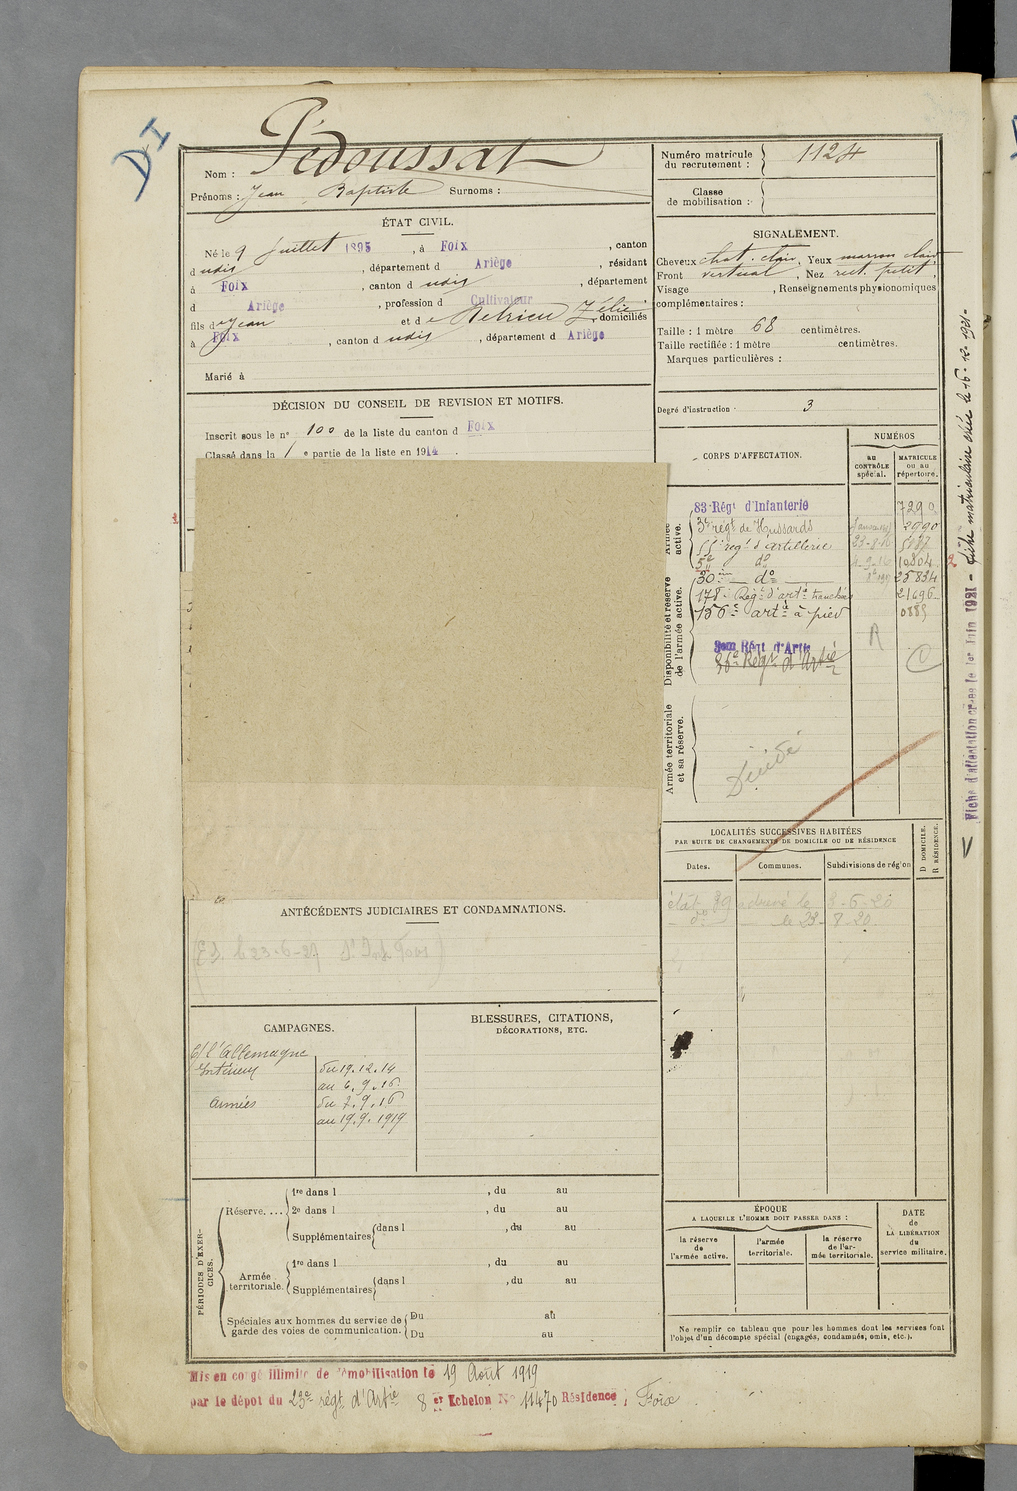 DI
Nom : Pédoussat
Prénoms : Jean Baptiste Surnoms :
Numéro matricule du recrutement : 1124
Classe de mobilisation :
ÉTAT CIVIL.
Né le 9 Juillet 1895, à Foix, canton
d udis, département d Ariège, résidant
à Foix, canton d udis, département
d Ariège, profession d Cultivateur
fils de Jean et de Zélie, domiciliés
à Foix, canton d udis, département d Ariège
Marié à
SIGNALEMENT.
Cheveux chat. clair, Yeux marron clair
Front vertical, Nez rect. petit,
Visage , Renseignements physionomiques
complémentaires :
Taille : 1 mètre 68 centimètres.
Taille rectifiée : 1 mètre centimètres.
Marques particulières :
Degré d'instruction : 3
DÉCISION DU CONSEIL DE REVISION ET MOTIFS.
Inscrit sous le n° 100 de la liste du canton d Foix
Classé dans la 1 e partie de la liste en 1914.
CORPS D'AFFECTATION.
NUMÉROS
au CONTRÔLE spécial.
MATRICULE ou au répertoire.
Armée active.
83 Régt d'Infanterie 7290
3e regt de Hussards 2990
55e regt d'Artillerie 23-8-16
5e do 10804
30eme do 25834
178e Regt d'arte tranchées 21696
156e arte à pied
Disponibilité et réserve de l'armée active.
9em Régt d'Artie
36e Régt d'Artie
R
Armée territoriale et sa réserve.
LOCALITÉS SUCCESSIVES HABITÉES
PAR SUITE DE CHANGEMENTS DE DOMICILE OU DE RÉSIDENCE
D DOMICILE.
R RÉSIDENCE.
Dates.
Communes.
Subdivisions de région
état 39 adressé le 8-6-20
do le 23-8-20
ANTÉCÉDENTS JUDICIAIRES ET CONDAMNATIONS.
CAMPAGNES.
C/ l'Allemagne
Intérieur du 19.12.14
au 6.9.16.
Armées du 7.9.16
au 19.9.1919
BLESSURES, CITATIONS,
DÉCORATIONS, ETC.
PÉRIODES D'EXERCICES.
Réserve....
1re dans l , du au
2e dans l , du au
Supplémentaires dans l , du au
Armée territoriale.
1re dans l , du au
Supplémentaires dans l , du au
Spéciales aux hommes du service de garde des voies de communication.
Du au
Du au
ÉPOQUE
A LAQUELLE L'HOMME DOIT PASSER DANS :
la réserve de l'armée active.
l'armée territoriale.
la réserve de l'armée territoriale.
DATE de LA LIBÉRATION du service militaire.
Ne remplir ce tableau que pour les hommes dont les services font
l'objet d'un décompte spécial (engagés, condamnés, omis, etc.).
Mis en congé illimité de démobilisation le 19 Août 1919
par le dépôt du 23e régt d'Artie 8 er Echelon No 11470 Résidence ; Foix
Fiche d'affectation créée le 1er Juin 1921 - fiche matriculaire créée le 16-12-1921-